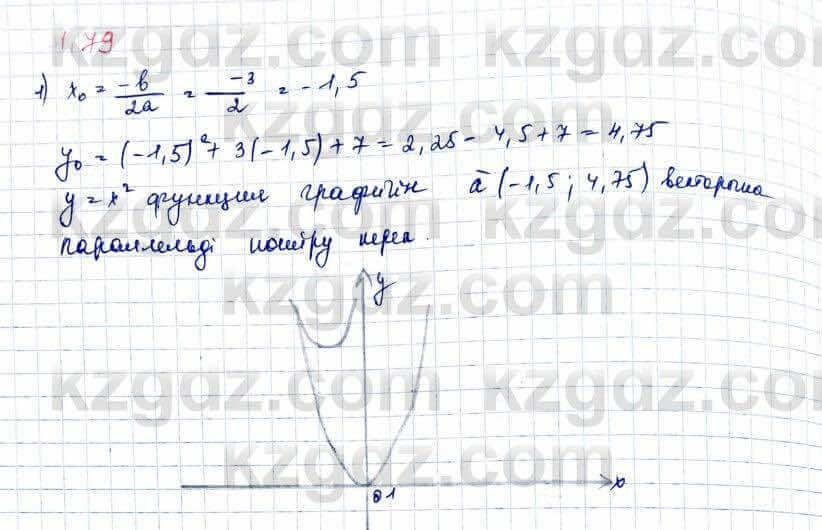 1.79
1) x₀ = -b/2a = -3/2 = -1,5
y₀ = (-1,5)² + 3(-1,5) + 7 = 2,25 - 4,5 + 7 = 4,75
y = x² функция графигін ā (-1,5; 4,75) векторына
параллельді көшіру керек.
y
x
0 1
kzgdz.com kzgdz.com
kzgdz.com
kzgdz.com kzgdz.com
kzgdz.com
kzgdz.com kzgdz.com
kzgdz.com